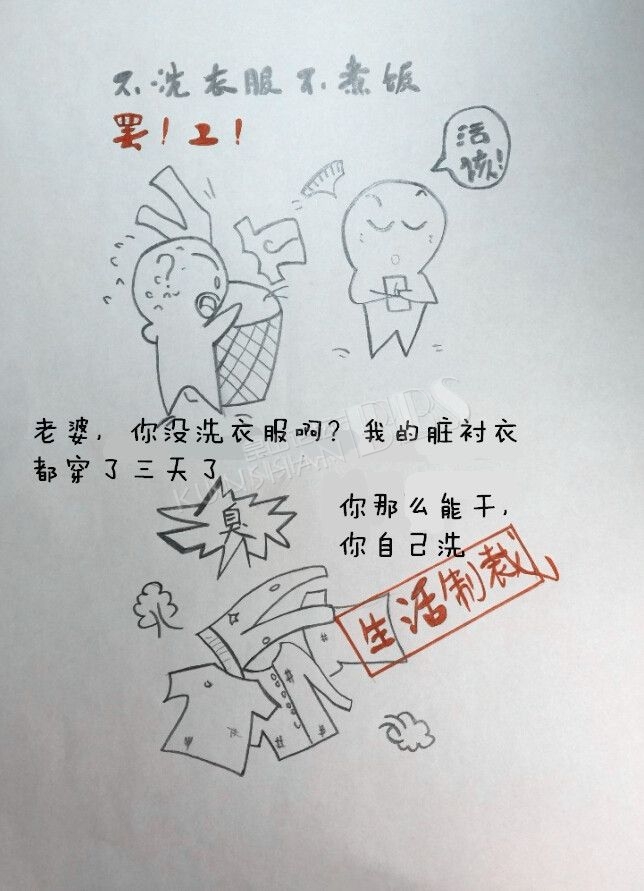 不洗衣服不煮饭
罢！工！
活
该！
老婆，你没洗衣服啊？我的脏衬衣
都穿了三天了
臭
你那么能干，
你自己洗
生活制裁